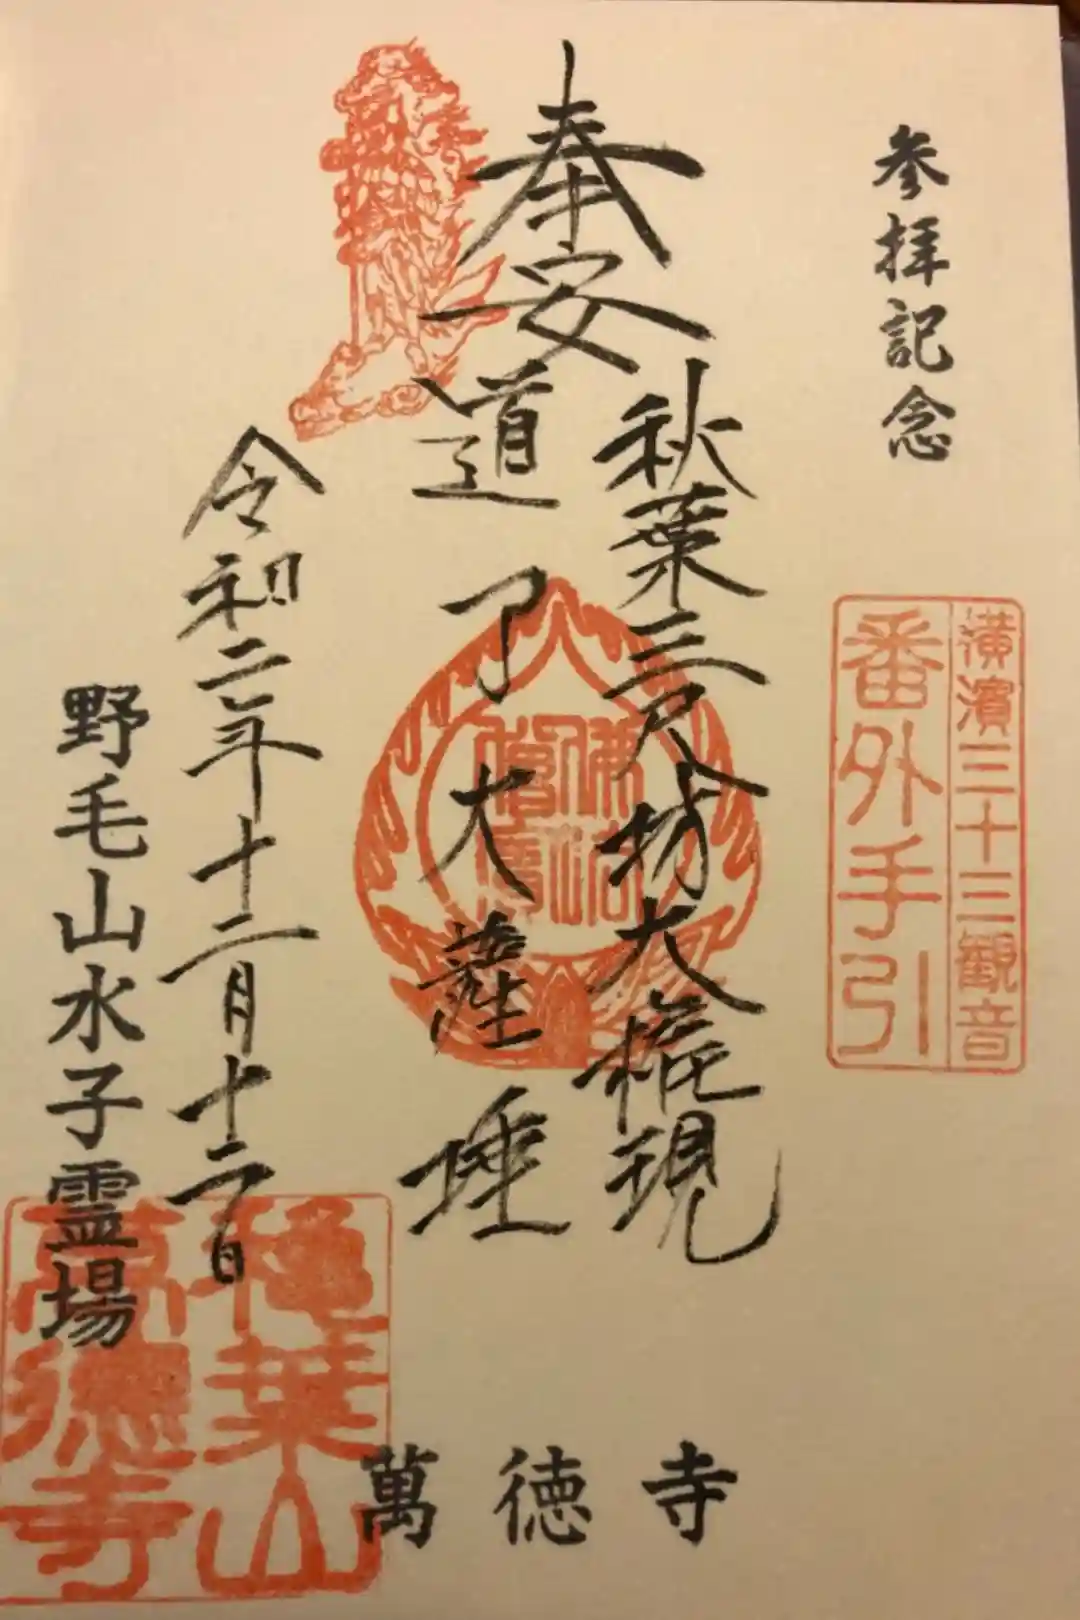 参拝記念
横濱三十三観音
番外手引
奉安
秋葉三尺坊大権現
道了大薩埵
佛法僧寶
令和二年十二月十二日
野毛山水子霊場
萬徳寺
秋葉山
萬德寺